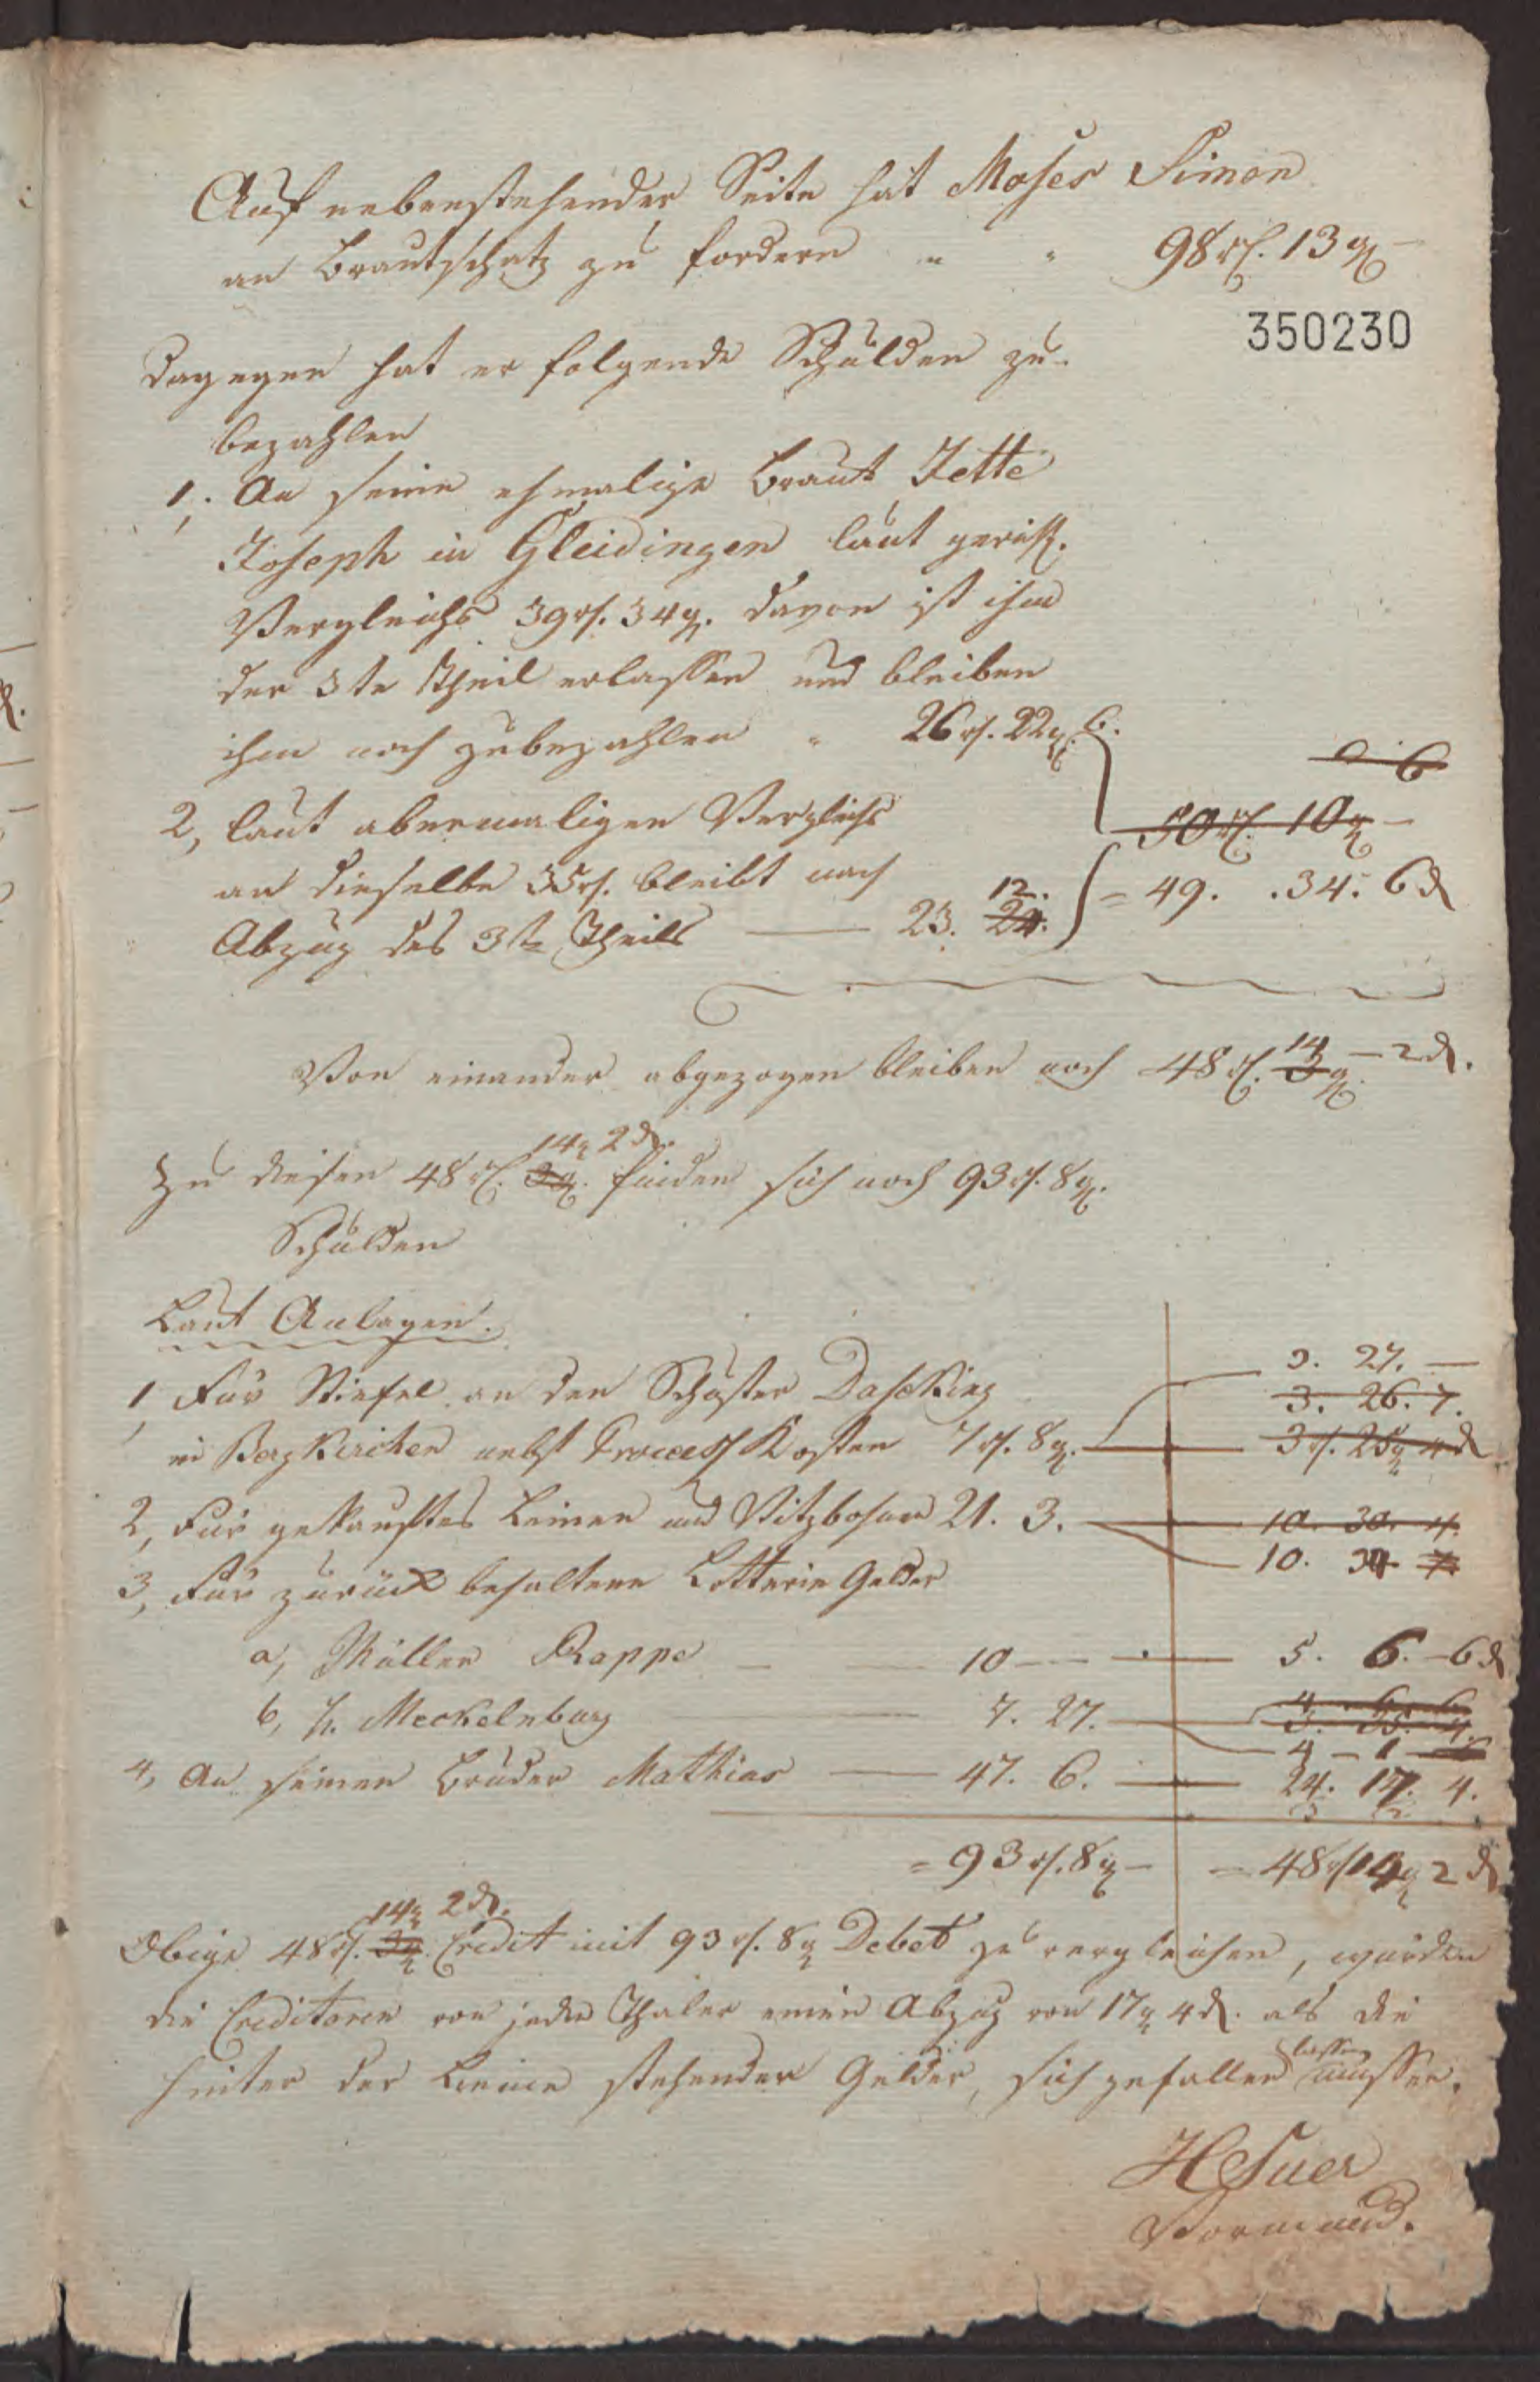 Auf nebenstehender Seite hat Moses Simon
an Brautschatz zu fordern " " 98 rl. 13 g –
350230
Dagegen hat er folgende Schulden zu
bezahlen
1, An seine ehmalige Braut Jette
Joseph in Gleidingen laut gerichtl.
Vergleichs 39 rl. 34 g. davon ist ihm
der 3te Theil erlassen und bleiben
ihm noch zubezahlen " 26 rl. 22 g. 6.
6
50 rl. 10 g –
2, laut abermaligen Vergleichs
an dieselbe 35 rl. bleibt nach
Abzug des 3te Theils — 23. 24. 12. = 49. .34. 6 d
Von einander abgezogen bleiben noch 48 rl. 3 g. 14 – 2 d.
Zu diesen 48 rl. 3 g. 14 g 2 d. finden sich noch 93 rl. 8 g.
Schulden
Laut Anlagen.
3. 27. —
1, Für Stiefel an den Schuster Dasking
3. 26. 7.
in Bergkirchen nebst Process Kosten 7 rl. 8 g. — 3 rl. 25 g 4 d
2, Für gekauftes Leinen und 21. 3. — 10. 30. 4.
10. 34
3, Für zurück behaltene Lotterie Gelder
a, Müller Rappe — 10 — — 5. 6. – 6 d
b, H. Meckelnburg — 7. 27. —
4 – 1
4, An seinen Bruder Mathias — 47. 6. — 24. 17. 4.
= 93 rl. 8 g – = 48 rl 14 g 2 d
Obige 48 rl. 3 g. 14 g 2 d. Credit mit 93 rl. 8 g Debet zu vergleichen, würden
die Creditoren von jeden Thaler einen Abzug von 17 g 4 d. als die
hinter der Linie stehender Gelder, sich gefallen lassen müssen.
H Suer
Vormund.